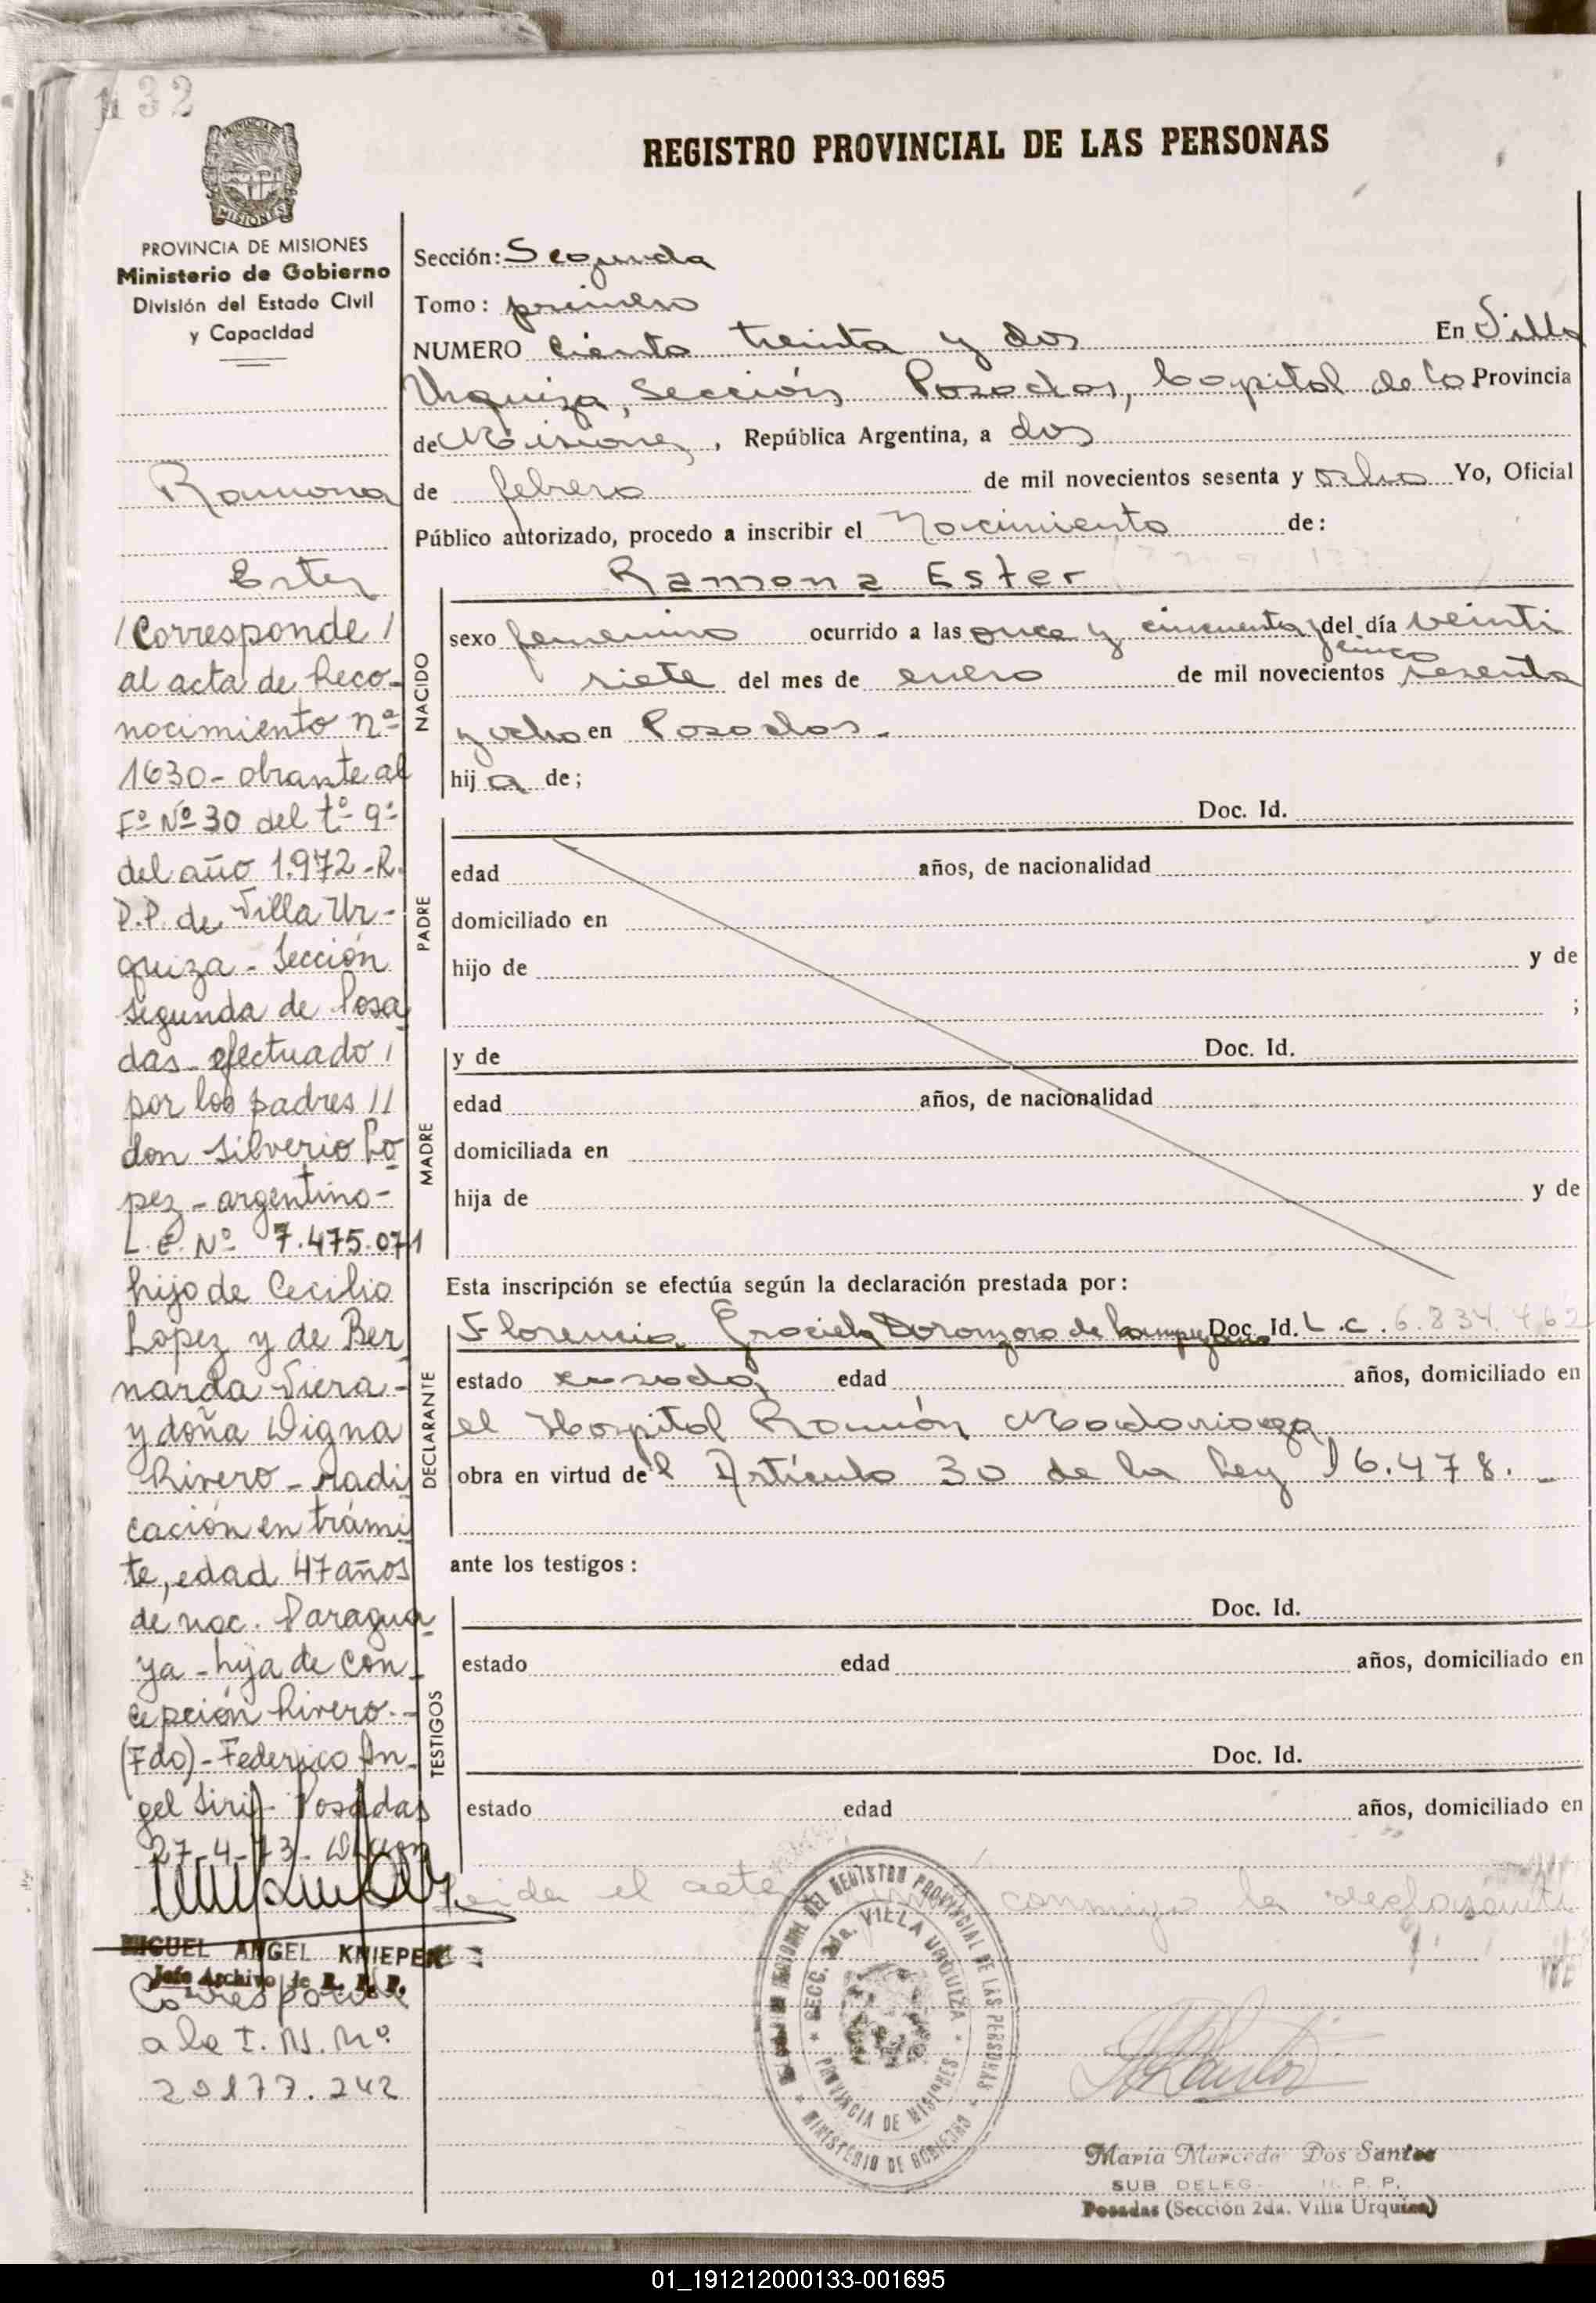 132
REGISTRO PROVINCIAL DE LAS PERSONAS
PROVINCIA DE MISIONES
Ministerio de Gobierno
División del Estado Civil
y Capacidad
Ramona
Ester
/Corresponde/
al acta de Reco-
nocimiento nº
1630- obrante al
Fº Nº 30 del tº 9º
del año 1.972 - R.
P.P. de Villa Ur-
quiza - Sección
segunda de Posa
das - efectuado /
por los padres //
don Silverio Lo
pez - argentino -
L.E. Nº 7.475.071
hijo de Cecilio
Lopez y de Ber
narda Viera -
y doña Digna
Rivero - radi
cación en trámi
te, edad 47 años
de nac. Paragua
ya - hija de Con
cepción Rivero. -
(Fdo) - Federico An-
gel Siri - Posadas
27-4-73 -
MIGUEL ANGEL KNIEPER
Jefe Archivo de R. P. P.
Corresponde
a la T. N. Nº
20177.242
Sección: Segunda
Tomo: primero
NUMERO Ciento treinta y dos En Villa
Urquiza, Sección Posadas, Capital de la Provincia
de Misiones, República Argentina, a dos
de febrero de mil novecientos sesenta y ocho Yo, Oficial
Público autorizado, procedo a inscribir el Nacimiento de:
Ramona Ester
NACIDO
sexo femenino ocurrido a las once y cincuenta y cinco del día veinti
siete del mes de enero de mil novecientos sesenta
y ocho en Posadas.-
hija de;
PADRE
Doc. Id.
edad años, de nacionalidad
domiciliado en
hijo de y de
;
MADRE
y de Doc. Id.
edad años, de nacionalidad
domiciliada en
hija de y de
Esta inscripción se efectúa según la declaración prestada por:
DECLARANTE
Florencia Graciela de Doc. Id. L.C. 6.834.462
estado casada edad años, domiciliado en
el Hospital Ramón Madariaga
obra en virtud del Artículo 30 de la Ley 16.478. -
ante los testigos:
TESTIGOS
Doc. Id.
estado edad años, domiciliado en
Doc. Id.
estado edad años, domiciliado en
Leida el acta conmigo la declarante
REGISTRO PROVINCIAL DE LAS PERSONAS
SECC. 2da. VILLA URQUIZA
PROVINCIA DE MISIONES
MINISTERIO DE GOBIERNO
María Mercedes Dos Santos
SUB DELEG. R. P. P.
Posadas (Sección 2da. Villa Urquiza)
01_191212000133-001695